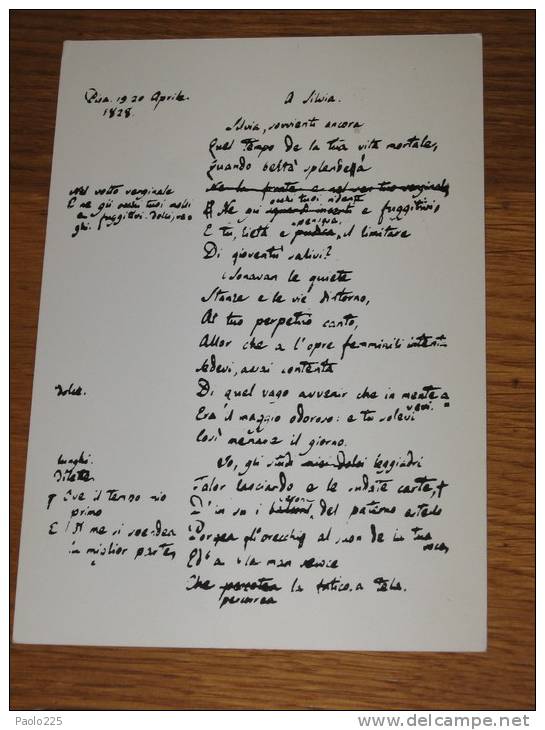 Pisa. 19 20 Aprile.
1828.
A Silvia.
Silvia, sovvienti ancora
Quel tempo de la tua vita mortale,
Quando beltà splendea
Nel volto verginale
E ne gli occhi tuoi molli
e fuggitivi. dolci, va
ghi.
Ne la fronte e nel sen tuo verginale
occhi tuoi ridenti
Ne gli sguardi incerti e fuggitivi
pensosa,
E tu, lieta e pudica, il limitare
Di gioventù salivi?
Sonavan le quiete
Stanze e le vie dintorno,
Al tuo perpetuo canto,
Allor che a l'opre femminili intenta
Sedevi, assai contenta
dolce.
Di quel vago avvenir che in mente a
vevi.
Era il maggio odoroso: e tu solevi
Così menare il giorno.
lunghi.
Dilette
Io, gli studi miei dolci leggiadri
Talor lasciando e le sudate carte,
Ove il tempo mio
primo
E di me si spendea
la miglior parte,
D'in su i del paterno ostello
Porgea gli orecchi al suon de la tua
voce,
Ed a la man veloce
Che percotea la faticosa tela.
percorrea
Paolo225
www.delcampe.net